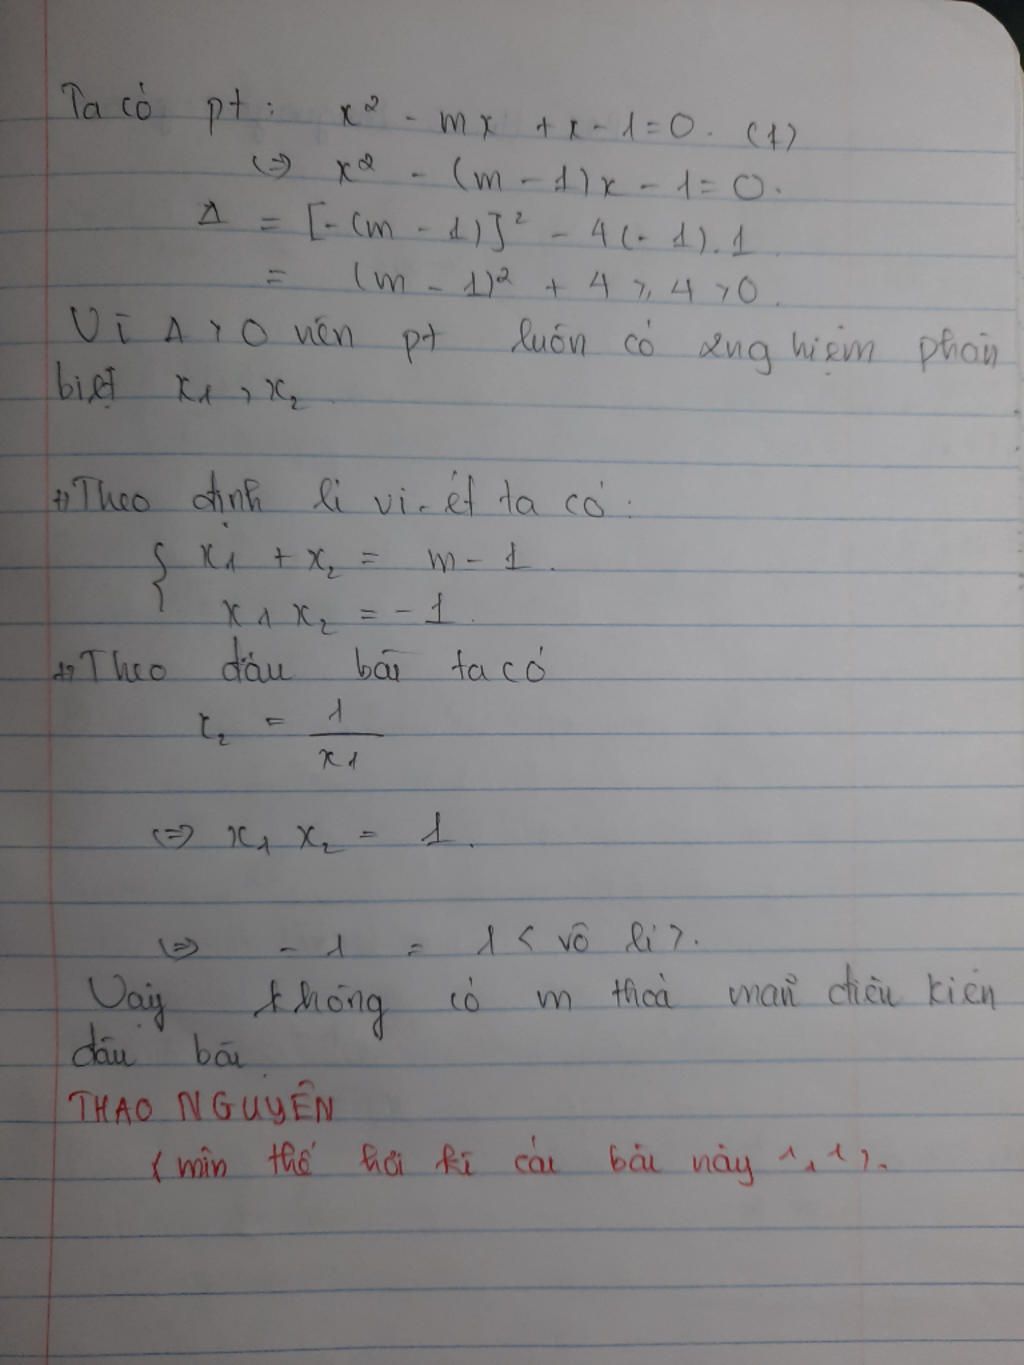 Ta có pt: x² - mx + x - 1 = 0. (1)
(=) x² - (m - 1)x - 1 = 0.
Δ = [-(m - 1)]² - 4(-1).1
= (m - 1)² + 4 ≥ 4 > 0.
Vì Δ > 0 nên pt luôn có 2 nghiệm phân
biệt x₁, x₂
+) Theo định lí vi-ét ta có:
{ x₁ + x₂ = m - 1.
x₁ x₂ = -1.
+) Theo đầu bài ta có
x₂ = 1/x₁
(=) x₁ x₂ = 1.
(=) -1 = 1 < vô lí >.
Vậy không có m thoả mãn điều kiện
đầu bài.
THAO NGUYÊN
( mìn thế hơi kì cái bài này ^,^ ).